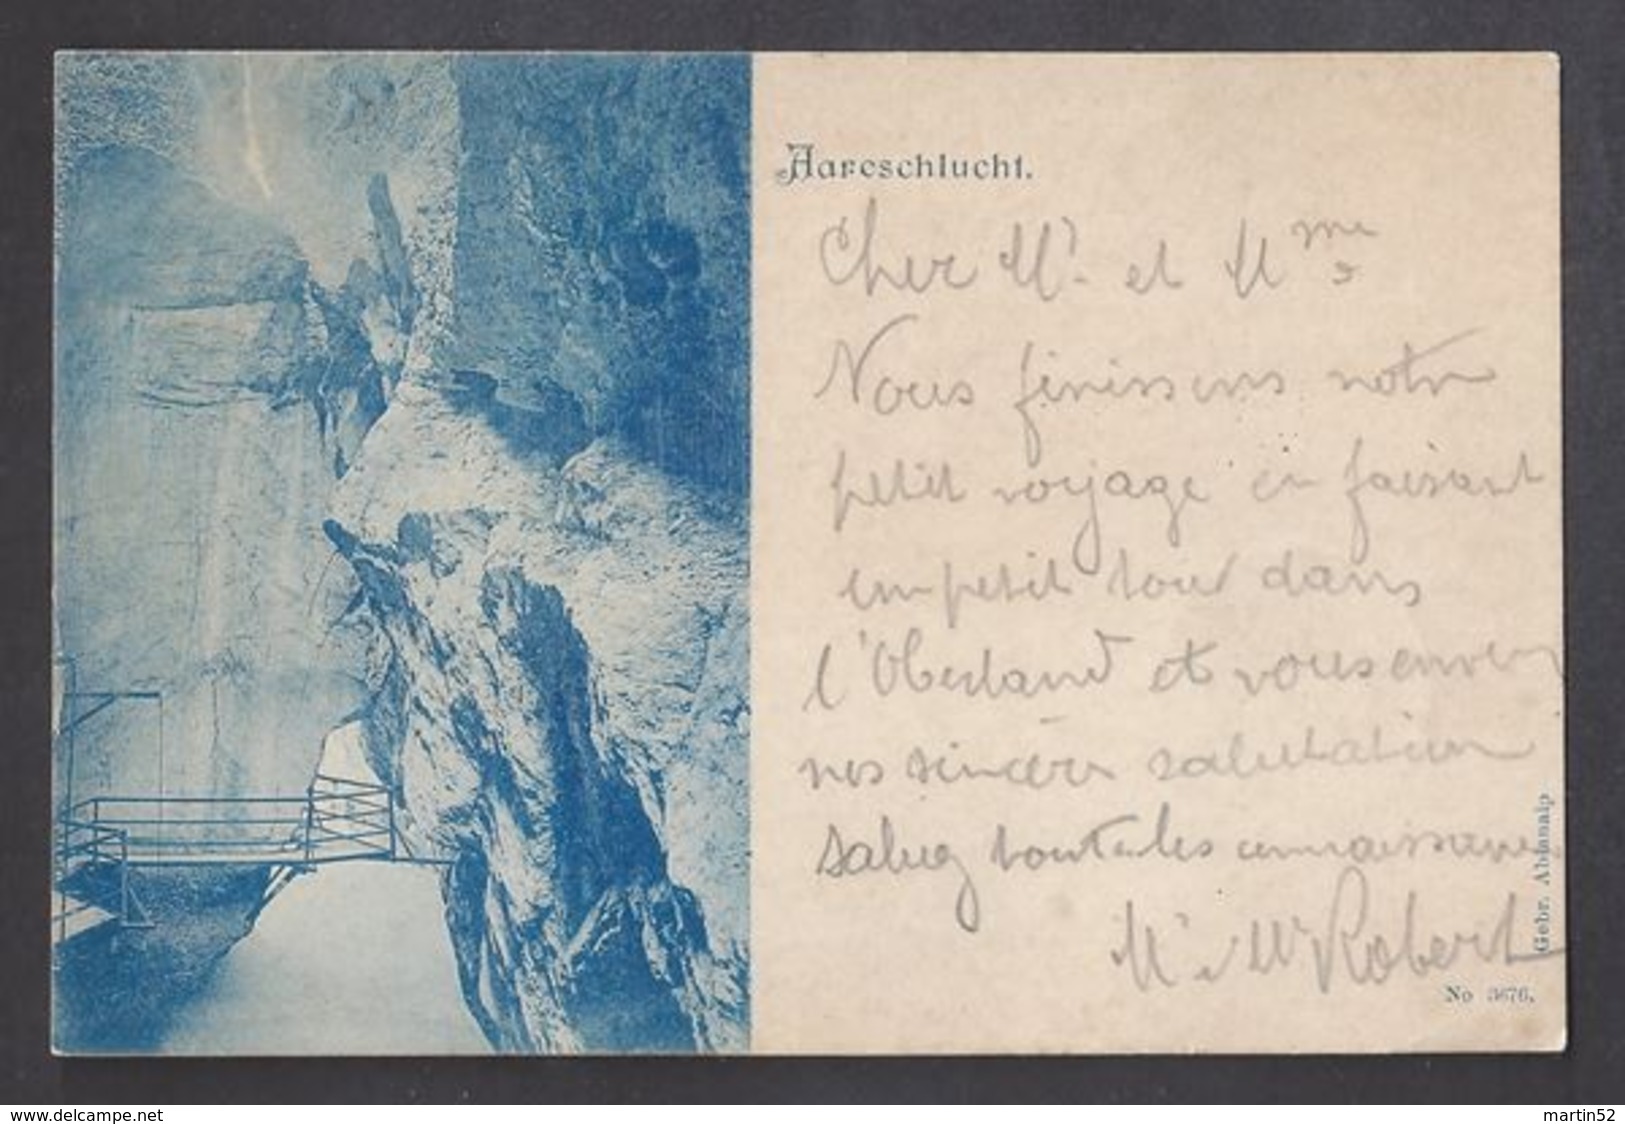 Aareschlucht.
Cher Mr. et Mme
Nous finissons notre
petit voyage en faisant
un petit tour dans
l'Oberland et vous envoy
nos sincère salutation
saluez toute les connaissance
Mr Robert
Gebr. Abplanalp
No 3676.
www.delcampe.net
martin52